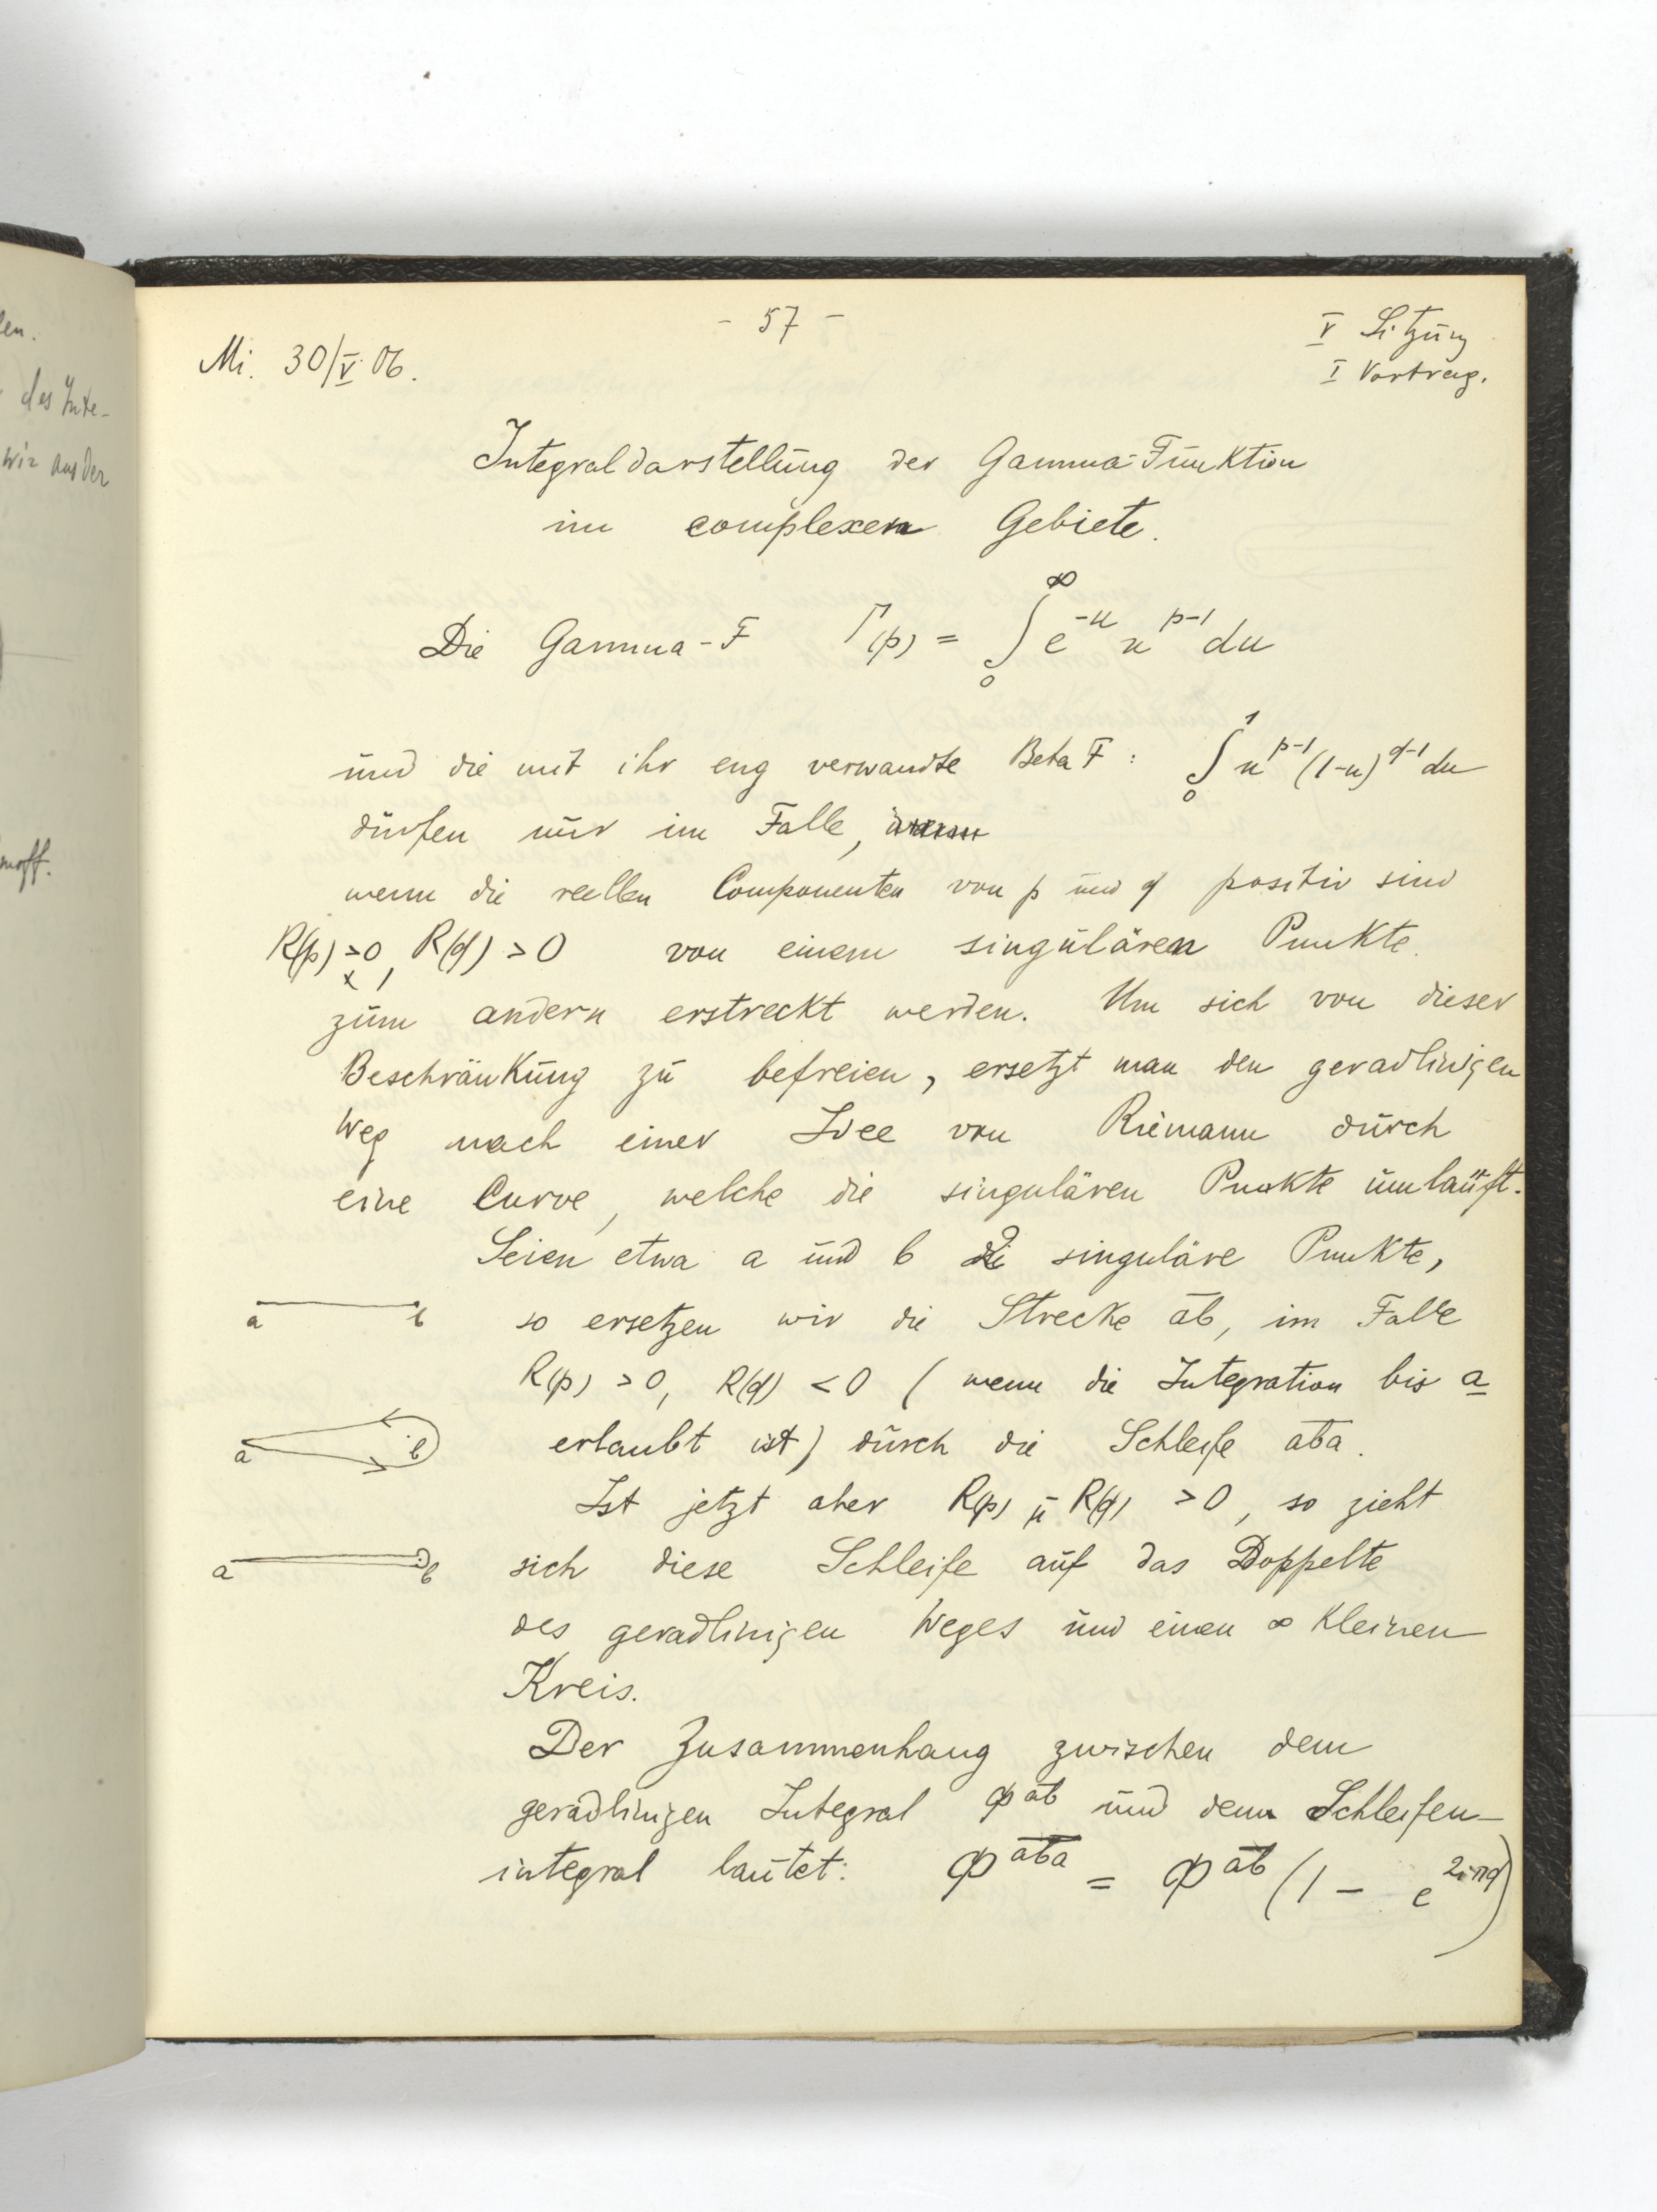 - 57 -
V Sitzung
Mi. 30/V. 06.
I Vortrag.
Integraldarstellung der Gamma-Funktion
im complexen Gebiete.
Die Gamma-F Γ(p) = ∫₀^∞ e^{-u} u^{p-1} du
und die mit ihr eng verwandte Beta F : ∫₀^1 u^{p-1} (1-u)^{q-1} du
dürfen nur im Falle,
wenn die reellen Componenten von p und q positiv sind
R(p) > 0, R(q) > 0 von einem singulären Punkte
zum andern erstreckt werden. Um sich von dieser
Beschränkung zu befreien, ersetzt man den geradlinigen
Weg nach einer Idee von Riemann durch
eine Curve, welche die singulären Punkte umläuft.
Seien etwa a und b 2 singuläre Punkte,
a b so ersetzen wir die Strecke ab, im Falle
R(p) > 0, R(q) < 0 (wenn die Integration bis a
a b erlaubt ist) durch die Schleife aba.
Ist jetzt aber R(p) u R(q) > 0, so zieht
a b sich diese Schleife auf das Doppelte
des geradlinigen Weges und einen ∞ kleinen
Kreis.
Der Zusammenhang zwischen dem
geradlinigen Integral Φ^{ab} und dem Schleifen-
integral lautet: Φ^{aba} = Φ^{ab} (1 - e^{2iπq})
len.
des Inte-
wir aus der